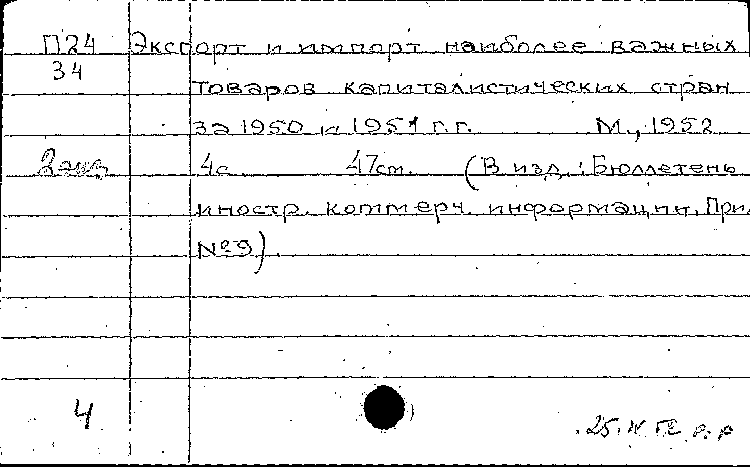 П24 Экспорт и импорт наиболее важных
34
товаров капиталистических стран
за 1950 и 1951 г.г. М., 1952
2 экз
4с. 47см. (В изд.: Бюллетень
иностр. коммерч. информации. При.
№9).
4